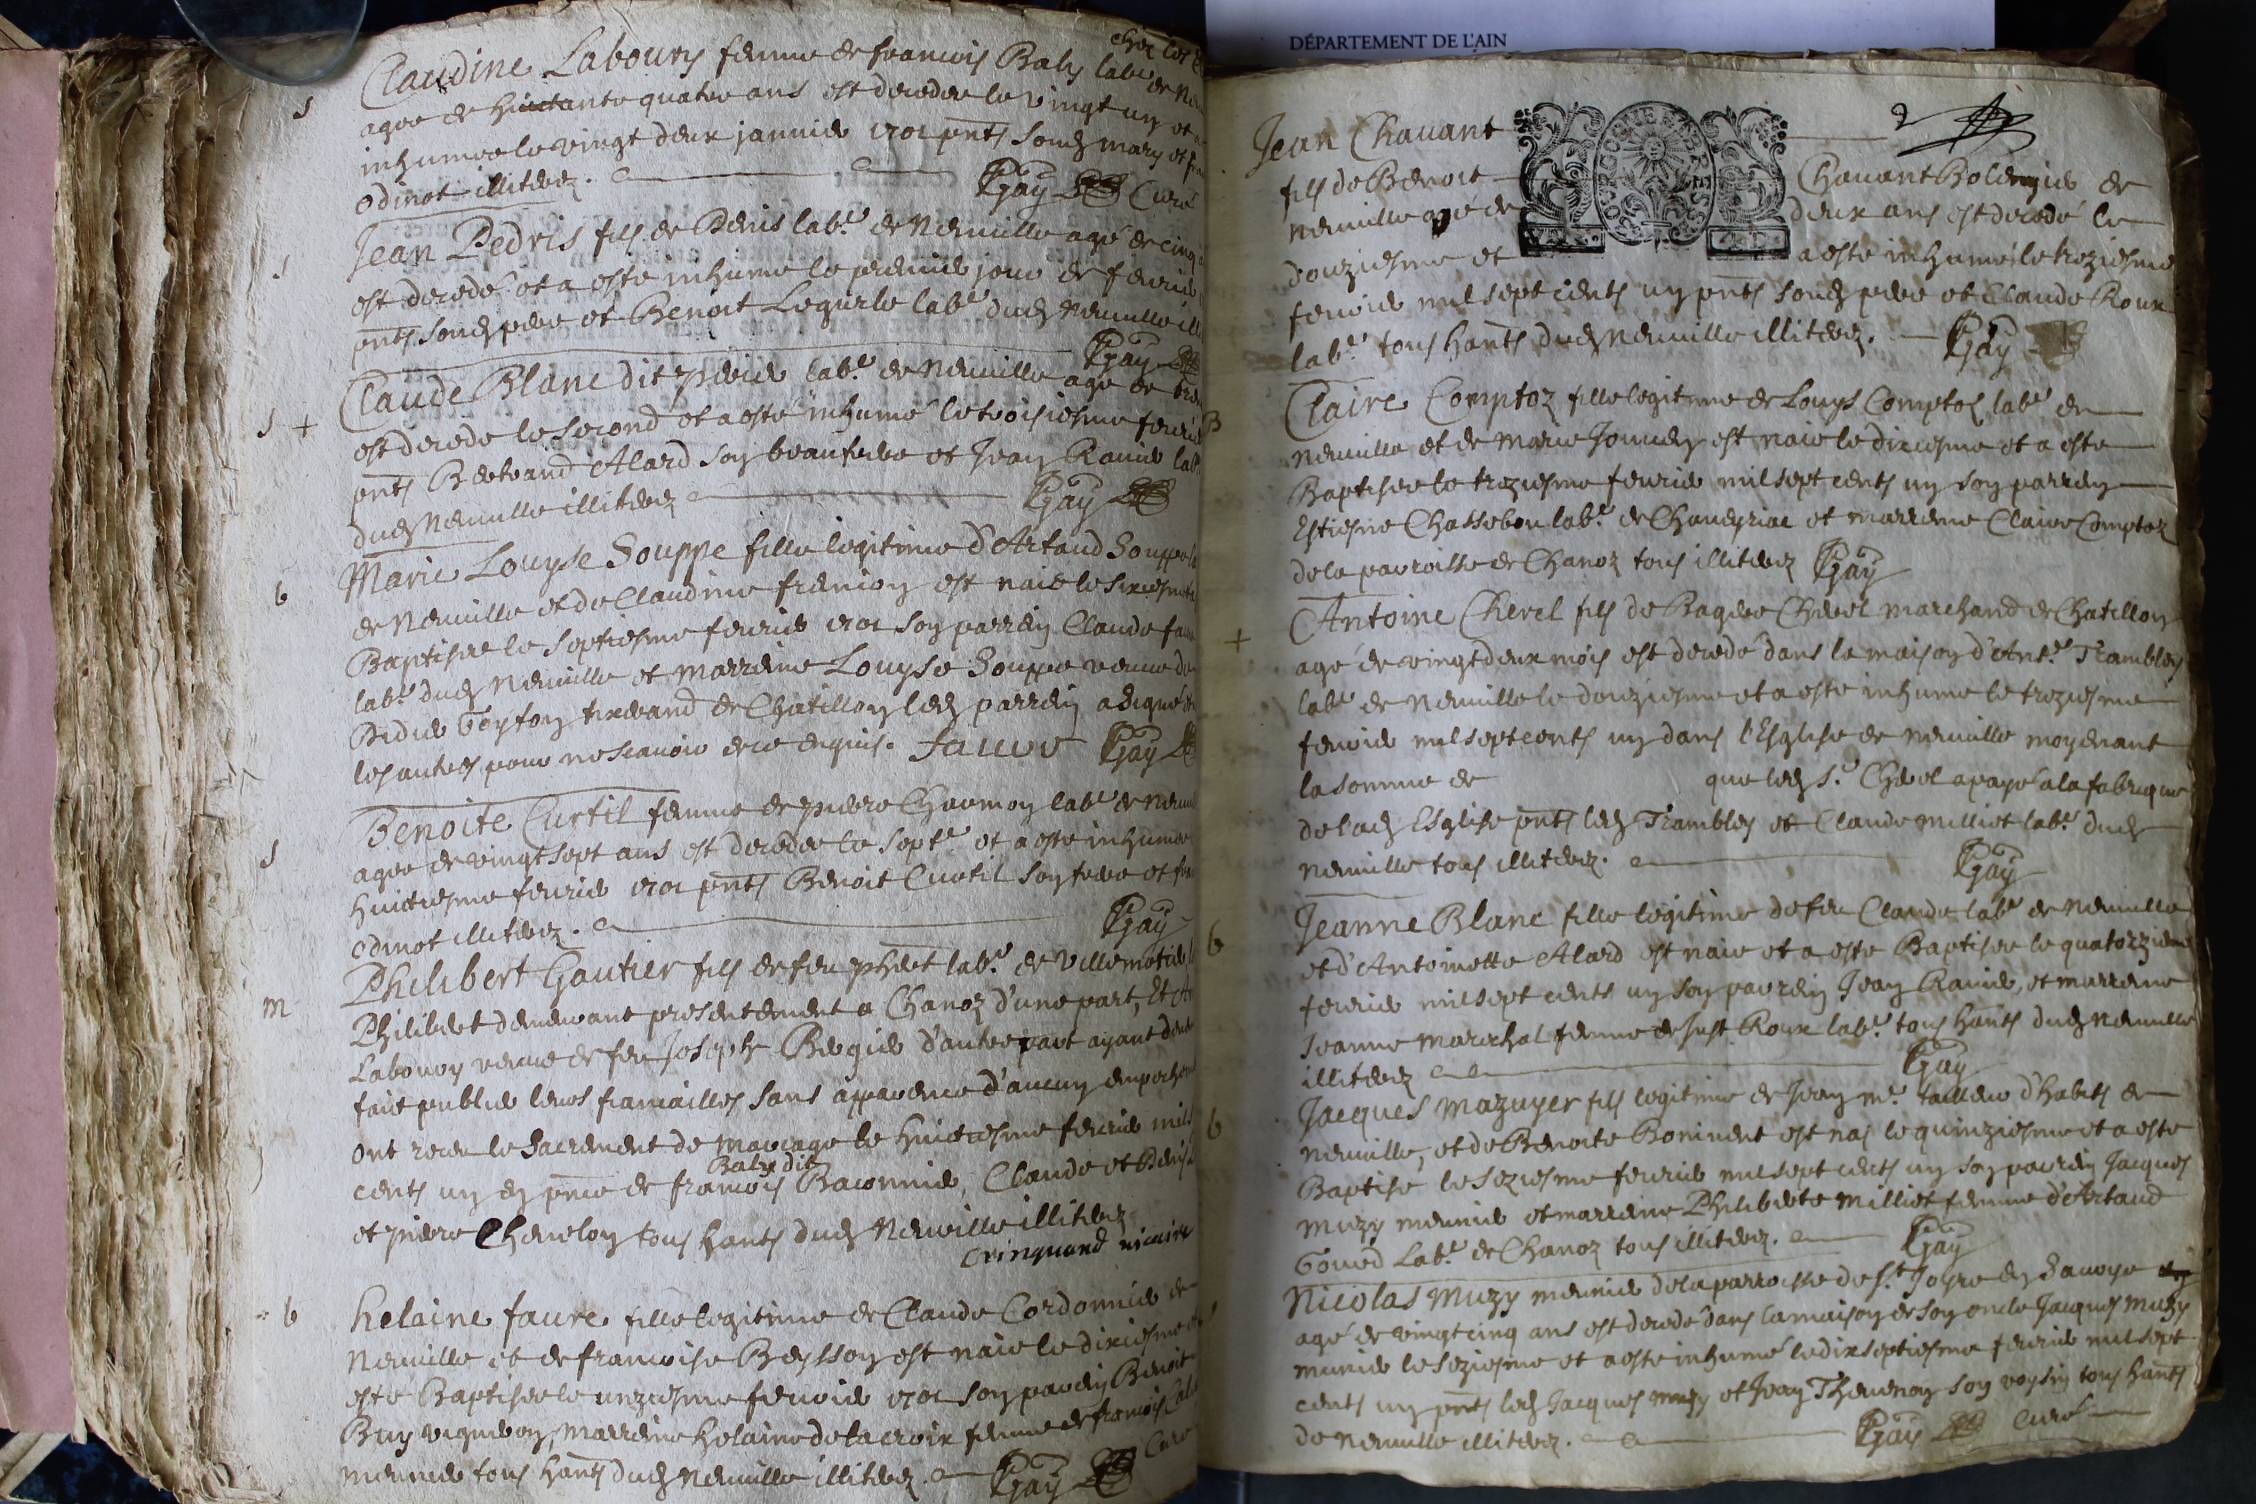 chez les
s
Claudine Laboury femme de francois Baly labr de Neu
agee de huictante quatre ans est decedee le vingt un et a
inhumee le vingt deux janvier 1701 pnts sond mary et
odinot illiterez. Gay Curé
s
Jean Pedris fils de Denis labr. de Neuville agé de cinq
est decedé et a este inhumé le premier jour de fevrier
pnts sond pere et Benoit Lequerle labr dud Neuville ill
Gay
s +
Claude Blanc dit pierre labr. de Neuville agé de tren
est decede le second et a esté inhumé le troisiesme fevrier
pnts Bertrand Alard son beaufrere et Jean Ravier labr
dud Neuville illiterez Gay
b
Marie Louyse Souppe fille legitime d'Artaud Souppe
de Neuville et de Claudine francon est naie le sixiesme
Baptisee le septiesme fevrier 1701 son parrein Claude faure
labr. dud Neuville et marreine Louyse Souppe veuve de
Didier Goyfon tixerand de Chatillon led parrein a signé
les autres pour ne scavoir de ce enquis. faure Gay
s
Benoite Curtil femme de pierre Charmon labr de Neuv
agee de vingt sept ans est decedee le sept.e et a este inhumee
huictiesme fevrier 1701 pnts Benoit Curtil son frere et
odinot illiterez. Gay
m
Philibert Gautier fils de feu phbert labr. de Villemotier
Philibert demeurant presentement a Chanoz d'une part, Et
Laboury veuve de feu Joseph Bergier d'autre part ayant
fait publier leurs fiancailles sans apparence d'aucun empeche
ont receu le Sacrement de mariage le huictiesme fevrier mil
Baly dit
cents un en pnce de francois Baconnier, Claude et Denis
et pierre Chevelon tous hants dud Neuville illiterez
Cringuand vicaire
b
helaine faure fille legitime de Claude Cordonnier de
Neuville et de francoise Beysson est naie le dixiesme et
este Baptisee le unziesme fevrier 1701 son parrein Benoit
Buy vigneron, marreine helaine delacroix femme de francois
meunier tous hants dud Neuville illiterez. Gay Curé
DÉPARTEMENT DE L'AIN
BOURGOGNE BRESSE
Jean Chavant
fils de Benoit Chavant Bolengier de
Neuville agé de deux ans est decedé le
douziesme et a esté inhumé le treziesme
fevrier mil sept cents un pnts sond pere et Claude Roux
labr. tous hants dud Neuville illiterez. Gay
B
Claire Comptoz fille legitime de Louys Comptoz labr de
Neuville et de marie Jouvdey est naie le dixiesme et a este
Baptisee le treziesme fevrier mil sept cents un son parrein
Estiesne Chassebon labr. de Chaveyriac et marreine Claire Comptoz
de la parroisse de Chanoz tous illiterez Gay
+
Antoine Cherel fils de Bagere Cherel marchand de Chatillon
agé de vingt deux mois est decedé dans la maison d'Ant.e Trambley
labr de Neuville le douziesme et a este inhume le treziesme
fevrier mil sept cents un dans l'Esglise de neuville moyenant
la somme de que led sr. Cherel a payé a la fabrique
de lad Esglise pnts led Trambley et Claude milliet labr. dud
Neuville tous illiterez. Gay
b
Jeanne Blanc fille legitime de feu Claude labr de Neuville
et d'Antoinette Alard est naie et a este Baptisee le quatorzieme
fevrier mil sept cents un son parrein Jean Ravier, et marreine
Jeanne marechal femme de Just Roux labr. tous hants dud Neuville
illiterez Gay
b
Jacques mazuyer fils legitime de Jean mr. tailleur d'habits de
Neuville, et de Benoite Bonivent est nai le quinziesme et a este
Baptise le seziesme fevrier mil sept cents un son parrein Jacques
muzy meunier et marreine Philiberte milliet femme d'Artaud
Goued Labr. de Chanoz tous illiterez. Gay
Nicolas muzy meunier de la parroisse de st. Joyre en Savoye
agé de vingt cinq ans est decedé dans la maison de son oncle Jacques muzy
munier le seziesme et a este inhumé le dix septiesme fevrier mil sept
cents un pnts led Jacques muzy et Jean Thevenon son voysin tous hants
de Neuville illiterez. Gay Curé